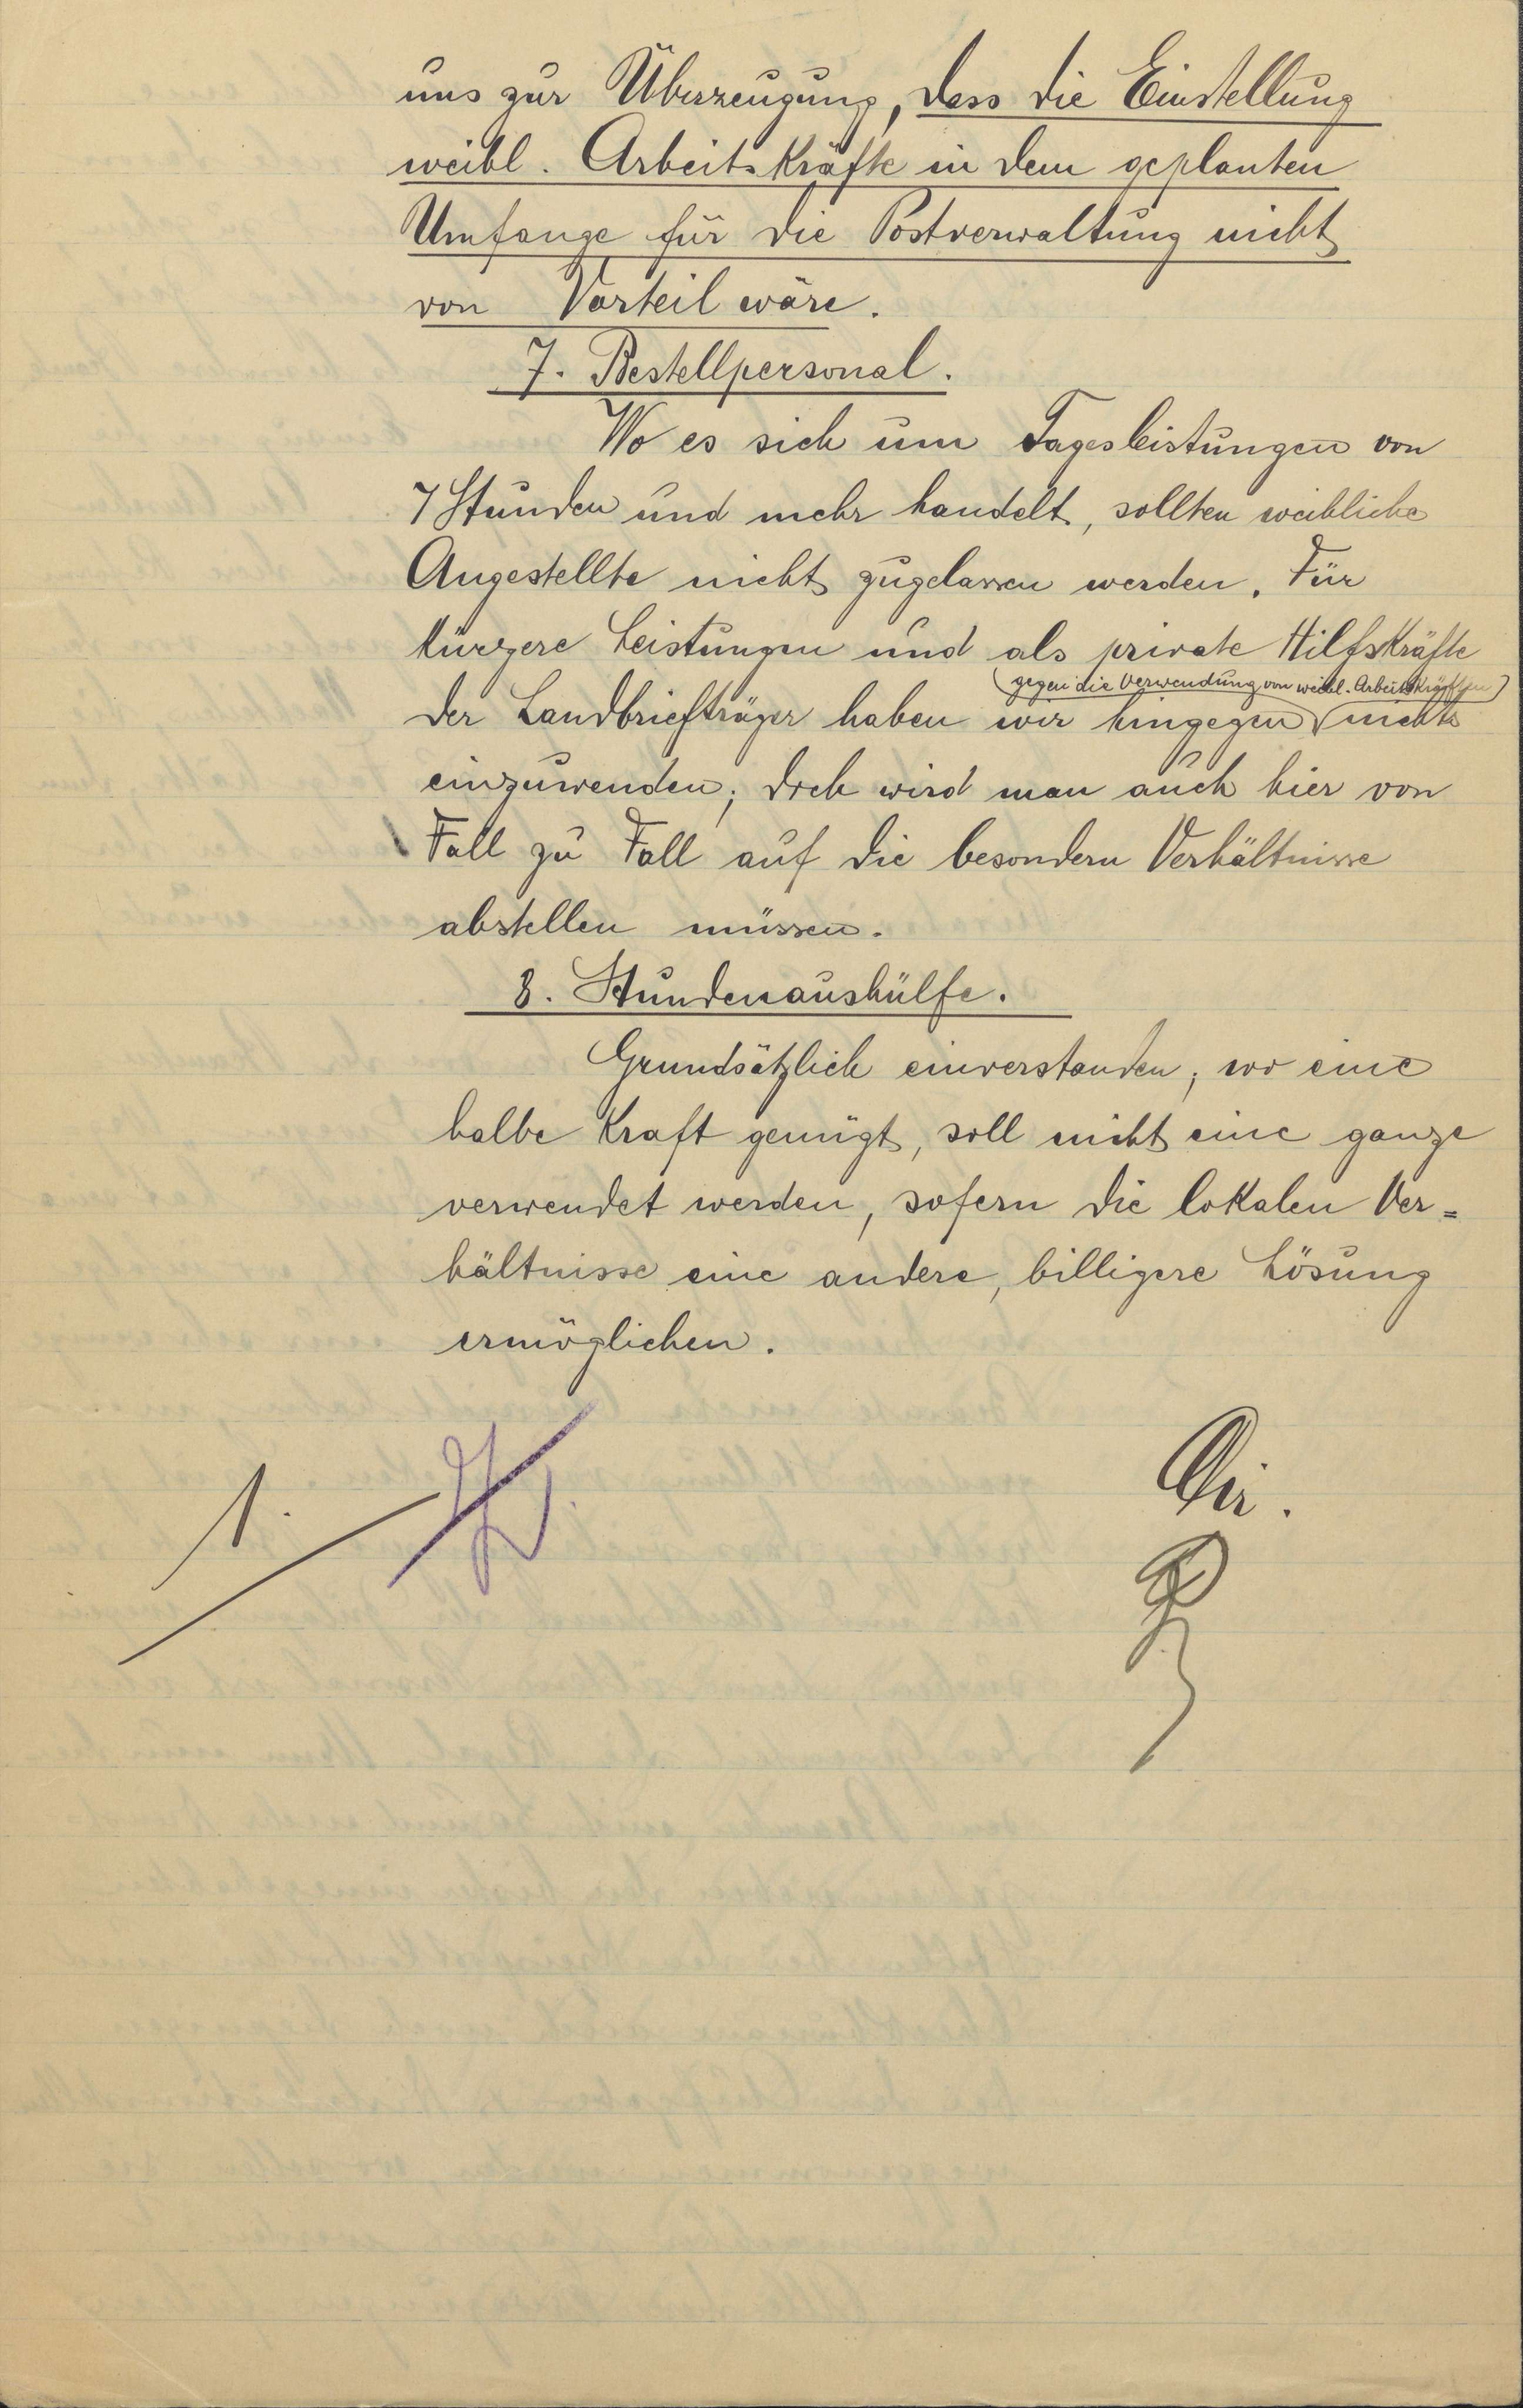 uns zur Überzeugung, dass die Einstellung
weibl. Arbeitskräfte in dem geplanten
Umfange für die Postverwaltung nicht
von Vorteil wäre.
7. Bestellpersonal.
Wo es sich um Tagesleistungen von
7 Stunden und mehr handelt, sollten weibliche
Angestellte nicht zugelassen werden. Für
kürzere Leistungen und als private Hilfskräfte
(gegen die Verwendung von weibl. Arbeitskräften)
der Landbriefträger haben wir hingegen nichts
einzuwenden; doch wird man auch hier von
Fall zu Fall auf die besondern Verhältnisse
abstellen müssen.
8. Stundenaushülfe.
Grundsätzlich einverstanden; wo eine
halbe Kraft genügt, soll nicht eine ganze
verwendet werden, sofern die lokalen Ver=
hältnisse eine andere, billigere Lösung
ermöglichen.
1.